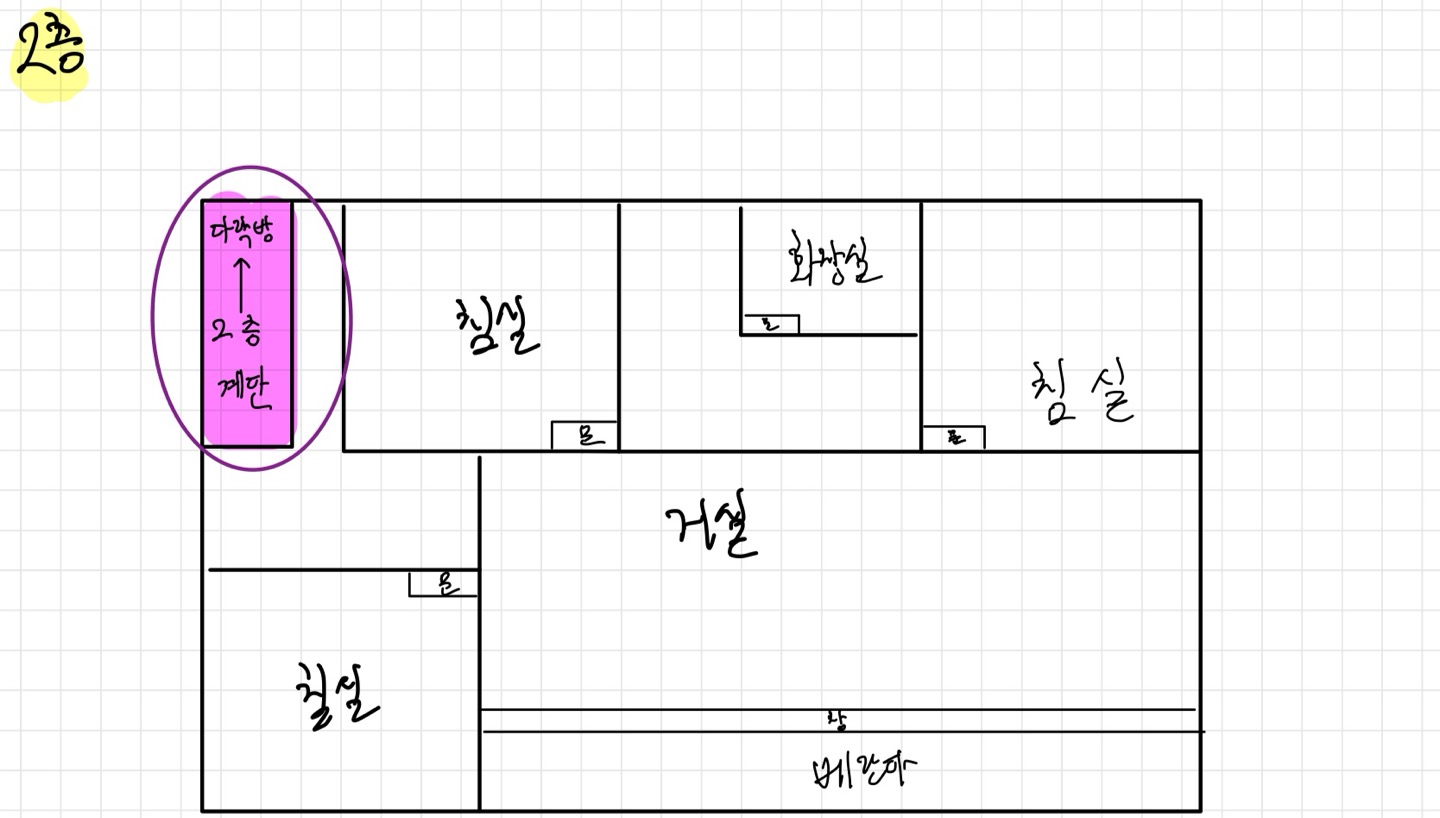 2층
다락방
↑
2층
계단
침실
문
화장실
문
침실
문
거실
문
침실
창
베란다